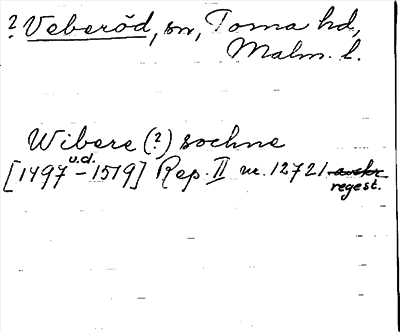 ? Veberöd, sn, Torna hd,
Malm. l.
Wibere (?) sochne
[1497 u.d. - 1519] Rep. II nr. 12721 avskr
regest.